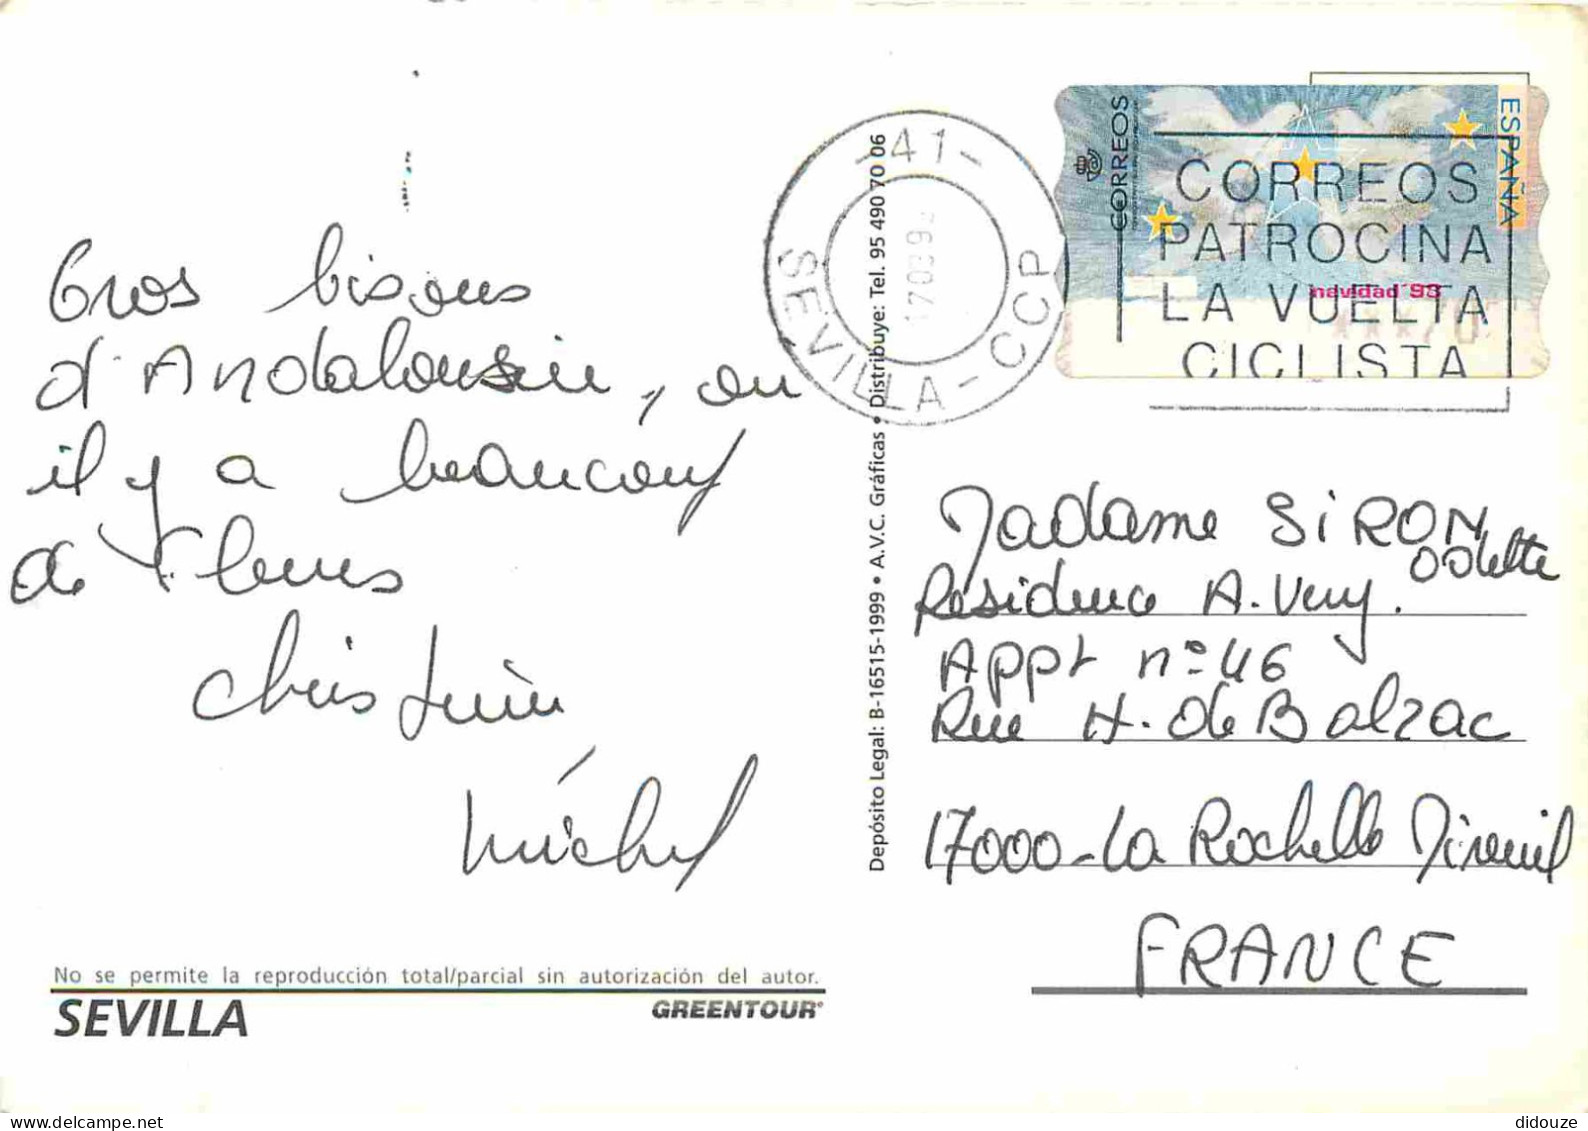 Gros bisous
d'Andalousie, ou
il y a beaucoup
de fleurs
Christine
Michel
No se permite la reproducción total/parcial sin autorización del autor.
SEVILLA
GREENTOUR®
Depósito Legal: B-16515-1999 • A.V.C. Gráficas • Distribuye: Tel. 95 490 70 06
-41-
SEVILLA-CCP
CORREOS
ESPAÑA
navidad'98
***70
CORREOS
PATROCINA
LA VUELTA
CICLISTA
Madame SIRON
Odette
Residence A. Very.
Appt n° 46
Rue H. de Balzac
17000-La Rochelle Mireuil
FRANCE
didouze